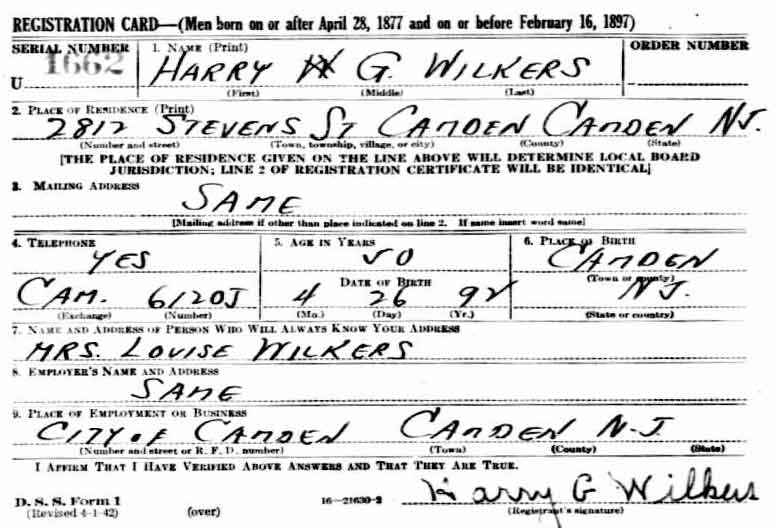 REGISTRATION CARD—(Men born on or after April 28, 1877 and on or before February 16, 1897)
SERIAL NUMBER 1. NAME (Print) ORDER NUMBER
U 1662 HARRY W G. WILKERS
(First) (Middle) (Last)
2. PLACE OF RESIDENCE (Print)
2812 STEVENS ST CAMDEN CAMDEN N.J.
(Number and street) (Town, township, village, or city) (County) (State)
[THE PLACE OF RESIDENCE GIVEN ON THE LINE ABOVE WILL DETERMINE LOCAL BOARD
JURISDICTION; LINE 2 OF REGISTRATION CERTIFICATE WILL BE IDENTICAL]
3. MAILING ADDRESS
SAME
[Mailing address if other than place indicated on line 2. If same insert word same]
4. TELEPHONE 5. AGE IN YEARS 6. PLACE OF BIRTH
YES 50 CAMDEN
DATE OF BIRTH (Town or county)
CAM. 6120J 4 26 92 N.J.
(Exchange) (Number) (Mo.) (Day) (Yr.) (State or country)
7. NAME AND ADDRESS OF PERSON WHO WILL ALWAYS KNOW YOUR ADDRESS
MRS. LOUISE WILKERS
8. EMPLOYER'S NAME AND ADDRESS
SAME
9. PLACE OF EMPLOYMENT OR BUSINESS
CITY OF CAMDEN CAMDEN N.J
(Number and street or R. F. D. number) (Town) (County) (State)
I AFFIRM THAT I HAVE VERIFIED ABOVE ANSWERS AND THAT THEY ARE TRUE.
Harry G Wilkers
D. S. S. Form 1 16—21630-2 (Registrant's signature)
(Revised 4-1-42) (over)